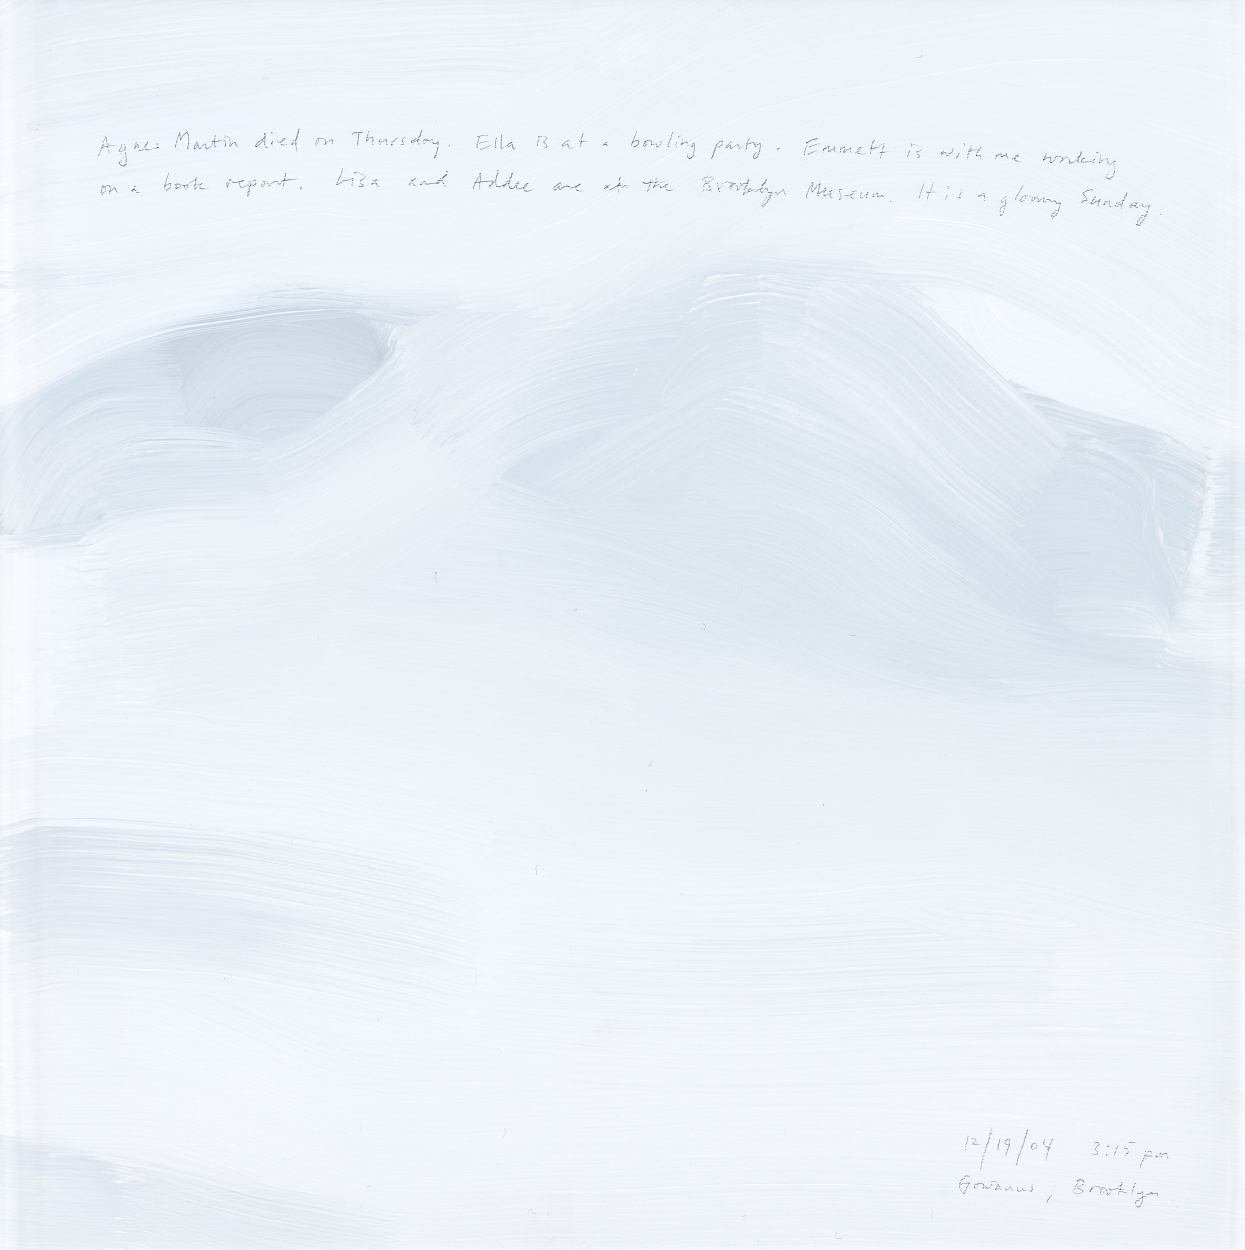 Agnes Martin died on Thursday. Ella is at a bowling party. Emmett is with me working
on a book report. Liza and Addee are at the Brooklyn Museum. It is a gloomy Sunday.
12/19/04 3:15 pm
Gowanus, Brooklyn